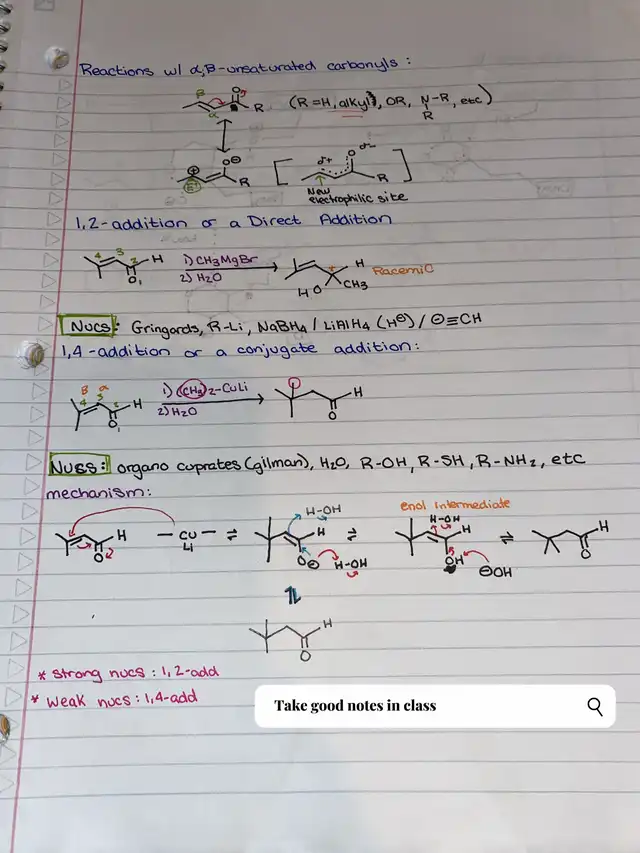 Reactions w/ α,β-unsaturated carbonyls:
β
α
O
R
(R=H, alkyl, OR, N-R, etc)
R
⊕
E⁺
O⊖
R
δ+
O
δ-
R
New
electrophilic site
1,2-addition or a Direct Addition
4 3 2 H
O1
1) CH3MgBr
2) H2O
H
HO
CH3
Racemic
Nucs: Gringards, R-Li, NaBH4 / LiAlH4 (H⊖) / ⊖≡CH
1,4-addition or a conjugate addition:
β α
4 3 2 H
O1
1) (CH3)2-CuLi
2) H2O
H
O
Nuss: organo cuprates (gilman), H2O, R-OH, R-SH, R-NH2, etc
mechanism:
H
O
— Cu —
Li
⇌
H-OH
H
O⊖
H-OH
⇌
enol intermediate
H-OH
H
OH
⊖OH
⇌
H
O
⇌
H
O
* Strong nucs: 1,2-add
* Weak nucs: 1,4-add
Take good notes in class